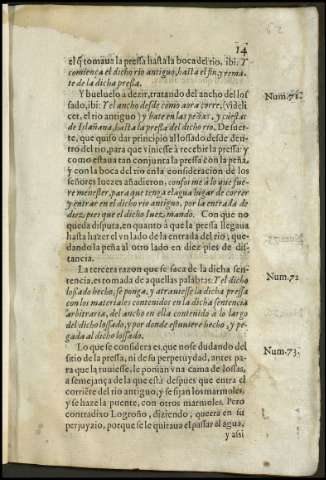 62
14
el q̃ tomaua la pressa hasta la boca del rio, ibi. Y
comiença el dicho rio antiguo, hasta el fin, y rema-
te de la dicha presa.
Y bueluelo a dezir, tratando del ancho del los
sado, ibi: Y el ancho desde como aora corre, (vide li
cet, el rio antiguo) y bate en las peñas, y cuesta
de Islañana, hasta la presa del dicho rio. De suer-
te, que quiso dar principio al lossado desde den-
tro del rio, para que viniesse à recebir la pressa: y
como estaua tan conjunta la pressa con la peña,
y con la boca del rio en la consideracion de los
señores luezes añadieron, conforme à lo que fue-
re menester, para que tenga el agua lugar de correr
y entrar en el dicho rio antiguo, por la entrada de
diez pies que el dicho luez, mando. Con que no
queda disputa, en quanto à que la pressa llegaua
hasta hazer el vn lado de la entrada del rio, que-
dando la peña al otro lado en diez pies de dis-
tancia.
La tercera razon que se saca de la dicha sen-
tencia, es tomada de aquellas palabras: Y el dicho
losado hecho, se ponga, y atrauiesse la dicha pressa
con los materiales contenidos en la dicha sentencia
arbitraria, del ancho en ella contenido à lo largo
del dicho lossado, y por donde estuuiere hecho, y pe-
gada al dicho lossado.
Lo que se considera es, que no se dudando del
sitio de la pressa, ni de su perpetuydad, antes pa-
ra que la tuuiesse, le ponian vna cama de lossas,
a semejança de la que està despues que entra el
corriẽte del rio antiguo, y se fixan los marmoles,
y se haze la puente, con otros marmoles. Pero
contradixo Logroño, diziendo, que era en su
perjuyzio, porque se le quitaua el passar al agua,
y assi
Num. 71.
Num. 72
Num. 73.